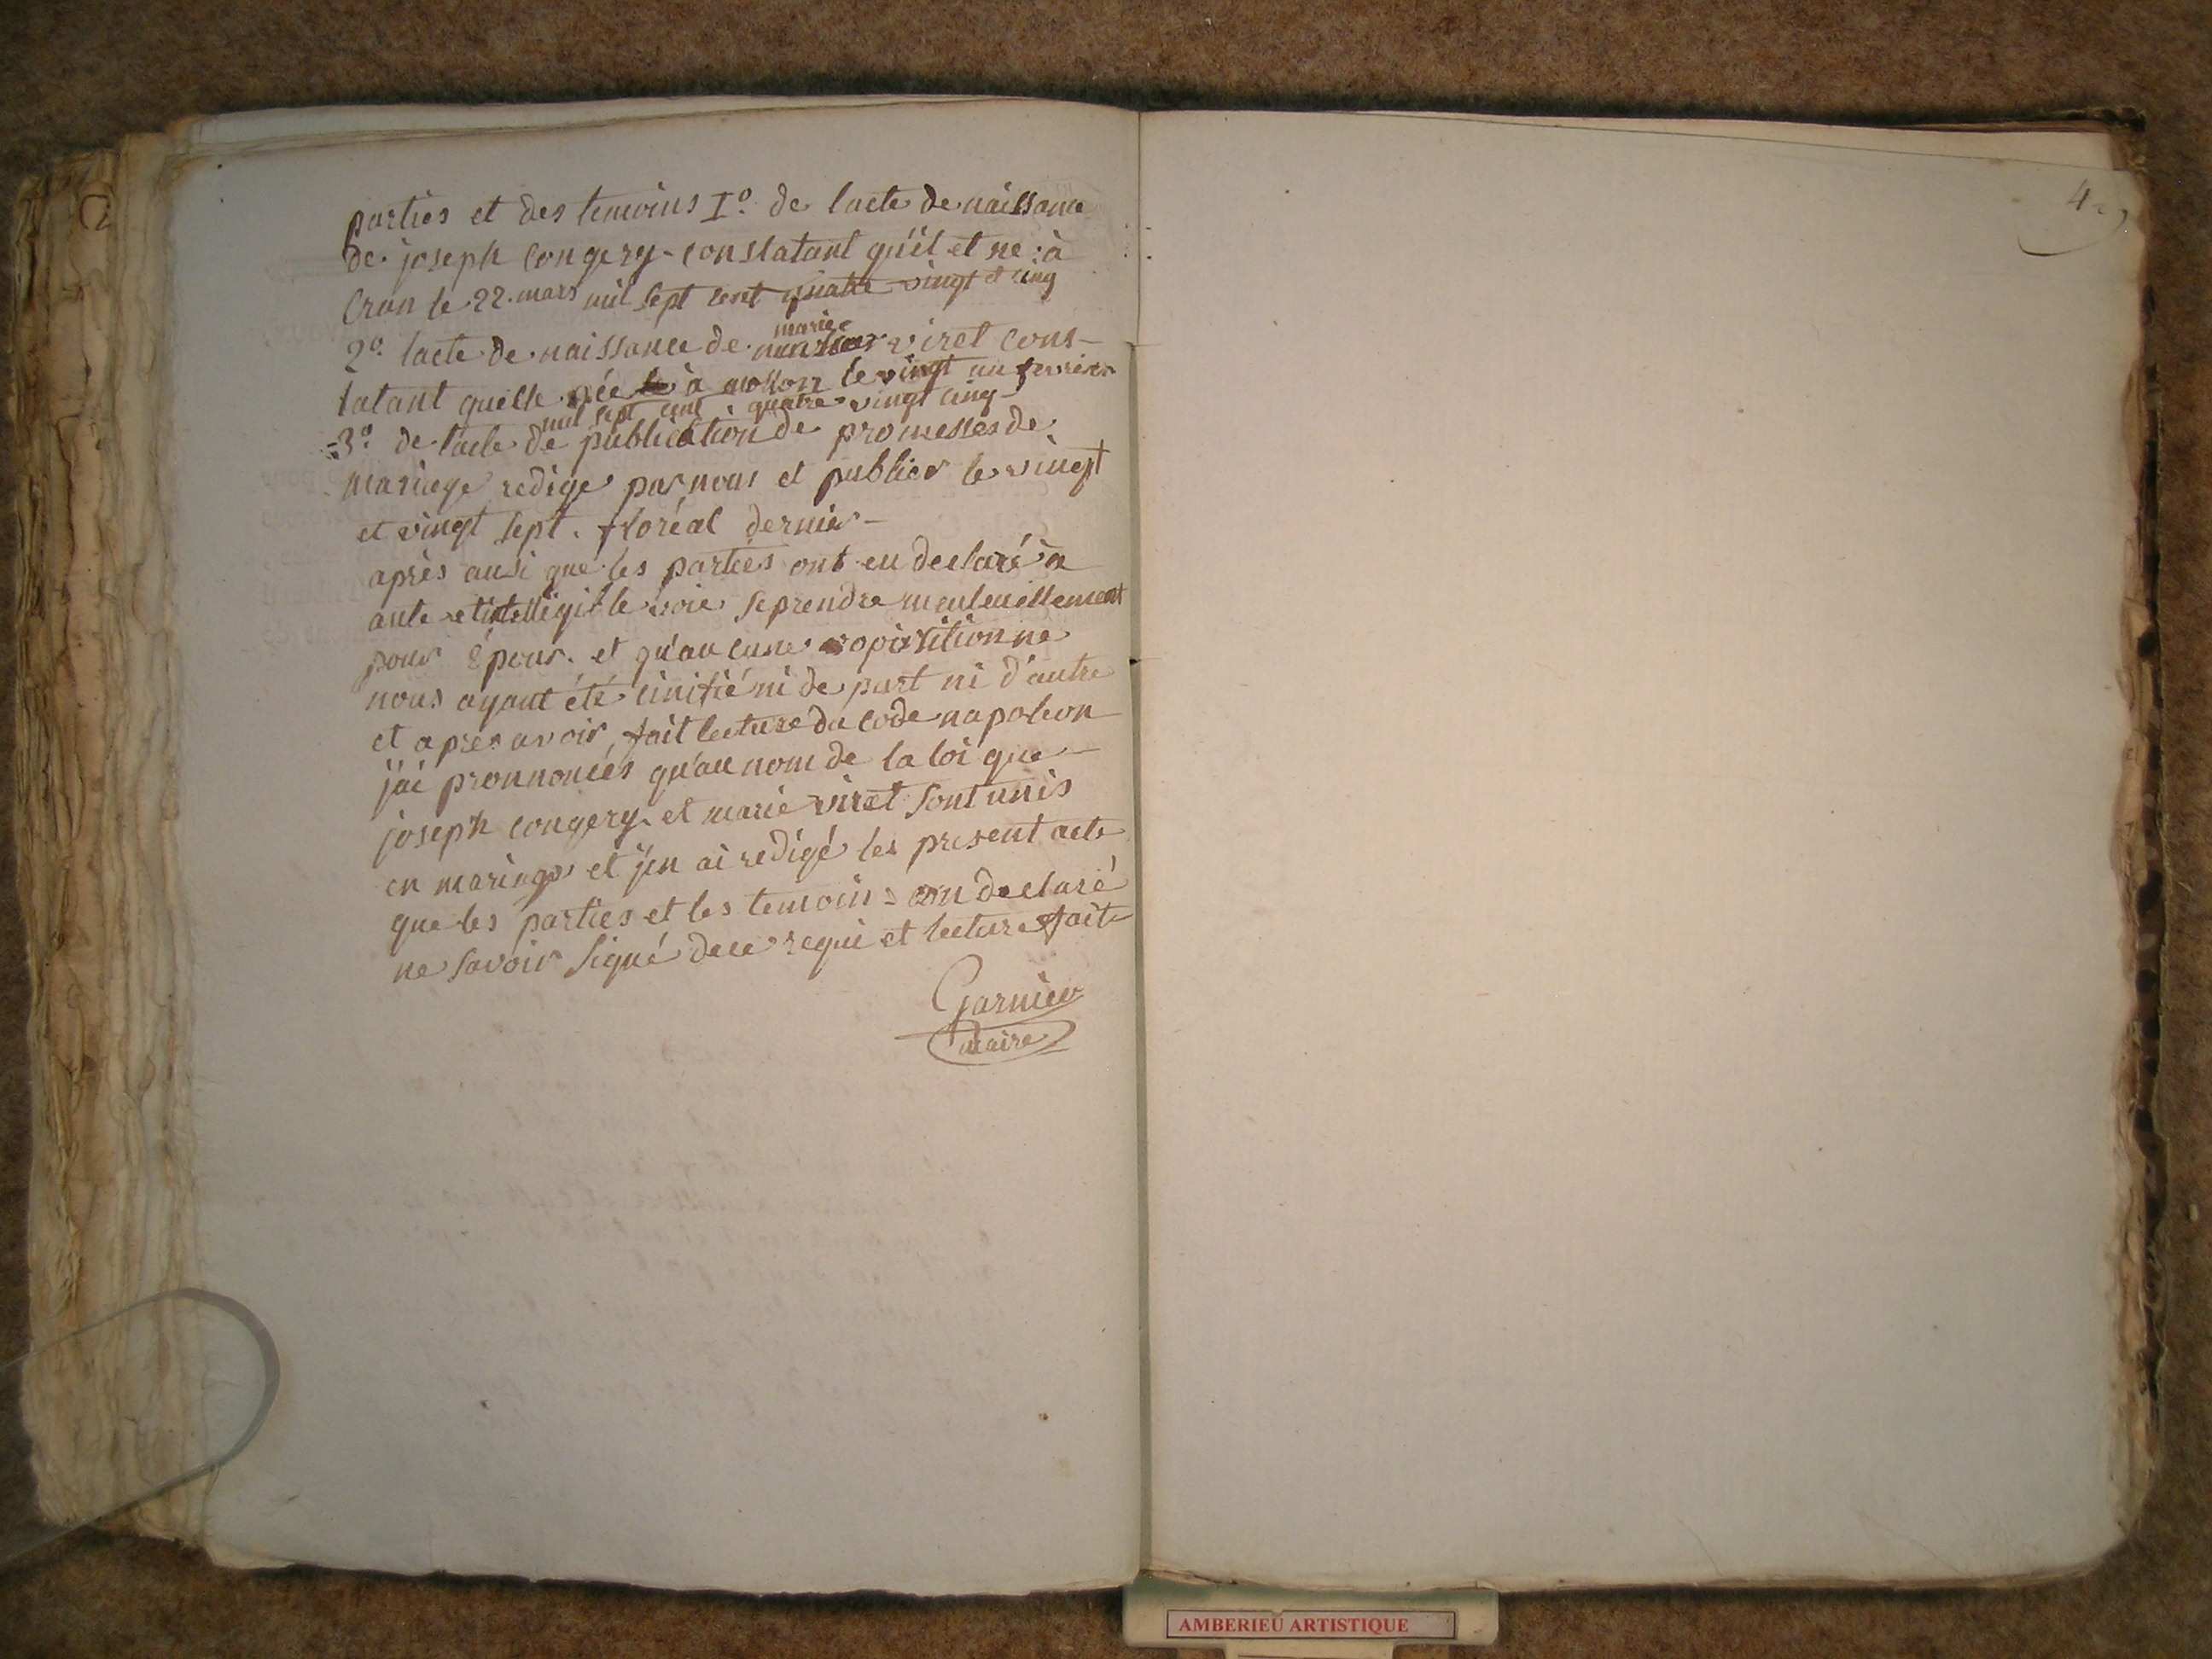 parties et des temoins I° de lacte de naissance
de joseph congery - constatant qu'il et ne à
Cran le 22. mars mil sept cent quatre vingt et cinq
marie
2° lacte de naissance de viret cons-
tatant quelle née à mollon le vingt un fevrier
mil sept cent quatre vingt cinq
3° de lacte de publication de promesses de
mariage redige par nous et publier le vingt
et vingt sept. floréal dernier -
après ausi que les parties ont eu declaré à
aute et intelligible voie se prendre meuteuellement
pour épour. et qu'aucune opositition ne
nous ayant été sinifié ni de part ni d'autre
et apres avoir fait lecture du code napoleon
j'ai pronnoncés qu'au nom de la loi que -
joseph congery et marie viret sont unis
en mariage et j'en ai redigé les present acte
que les parties et les temoins on declaré
ne savoir signé de ce requi et lecture fait
Garnier
maire
4
AMBERIEU ARTISTIQUE